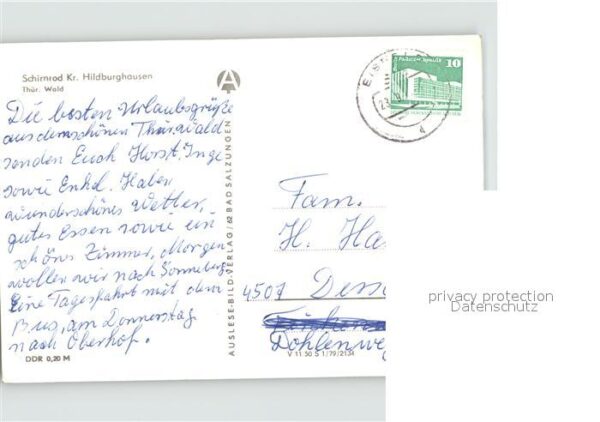 Schirnrod Kr. Hildburghausen
Thür. Wald
Die besten Urlaubsgrüße
aus dem schönen Thür.wald
senden Euch Horst, Inge
sowie Enkel. Haben
wunderschönes Wetter,
gutes Essen sowie ein
schönes Zimmer, Morgen
wollen wir nach Sonneberg
Eine Tagesfahrt mit dem
Bus, am Donnerstag
nach Oberhof.
DDR 0,20 M
AUSLESE-BILD-VERLAG/62 BAD SALZUNGEN
10
Fam.
H. Ha
4507 Dess
Dohlenweg
V 11 50 S 1/79/2134
privacy protection
Datenschutz